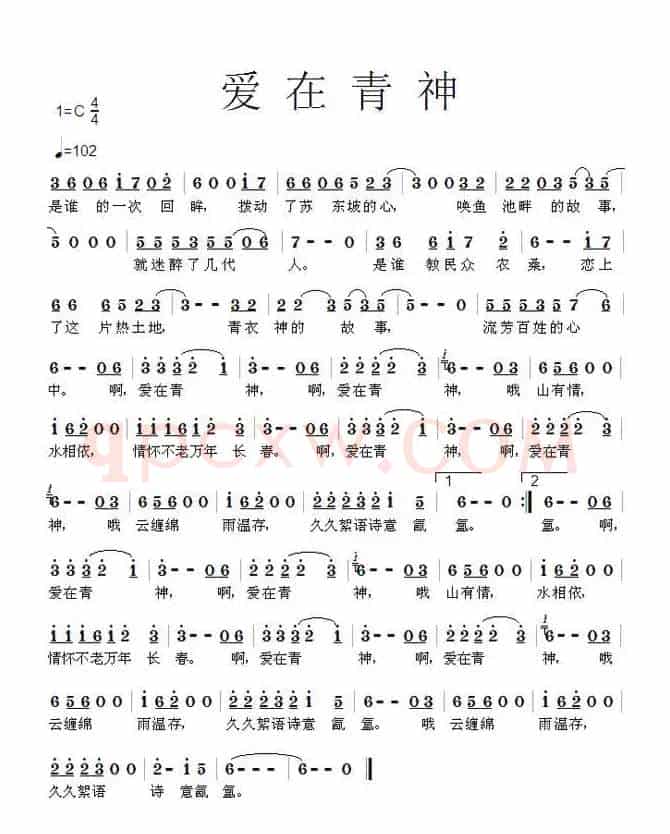 爱在青神
1=C 4/4
♩=102
3606 i7 02 | 600 i7 | 6606523 | 30032 | 2203535
是谁 的一次 回眸, 拨动 了苏 东坡的心, 唤鱼 池畔 的故事,
5000 | 55535506 | 7--0 | 36 6i7 20 6 | 0 i7
就迷醉了几代 人。 是谁 教民众 农桑, 恋上
66 6523 | 3--- | 3--32 | 22035 | 5553576
了这 片热土地, 青衣 神的 故事, 流芳百姓的心
6--06 | 33320i | 3--06 | 222023 | 6--03 | 65600
中。 啊, 爱在青 神, 啊, 爱在青 神, 哦 山有情,
i6200 | iii6i23 | 3--06 | 33320i | 3--06 | 222023
水相依, 情怀不老万年 长春。 啊, 爱在青 神, 啊, 爱在青
qpcxw.com
1
2
6--03 | 65600 | i6200 | 22232i5 | 6--0 :| 6--06
神, 哦 云缠绵 雨温存, 久久絮语诗意 氤 氲。 氲。 啊,
33320i | 3--06 | 222023 | 6--03 | 65600 | i6200
爱在青 神, 啊, 爱在青 神, 哦 山有情, 水相依,
iii6i23 | 3--06 | 33320i | 3--06 | 222023 | 6--03
情怀不老万年 长 春。 啊, 爱在青 神, 啊, 爱在青 神, 哦
65600 | i6200 | 22232i5 | 6--03 | 65600 | i6200
云缠绵 雨温存, 久久絮语诗意 氤 氲。 哦 云缠绵 雨温存,
222300 | 2-i5 | 6--- | 6--0
久久絮语 诗 意氤 氲。